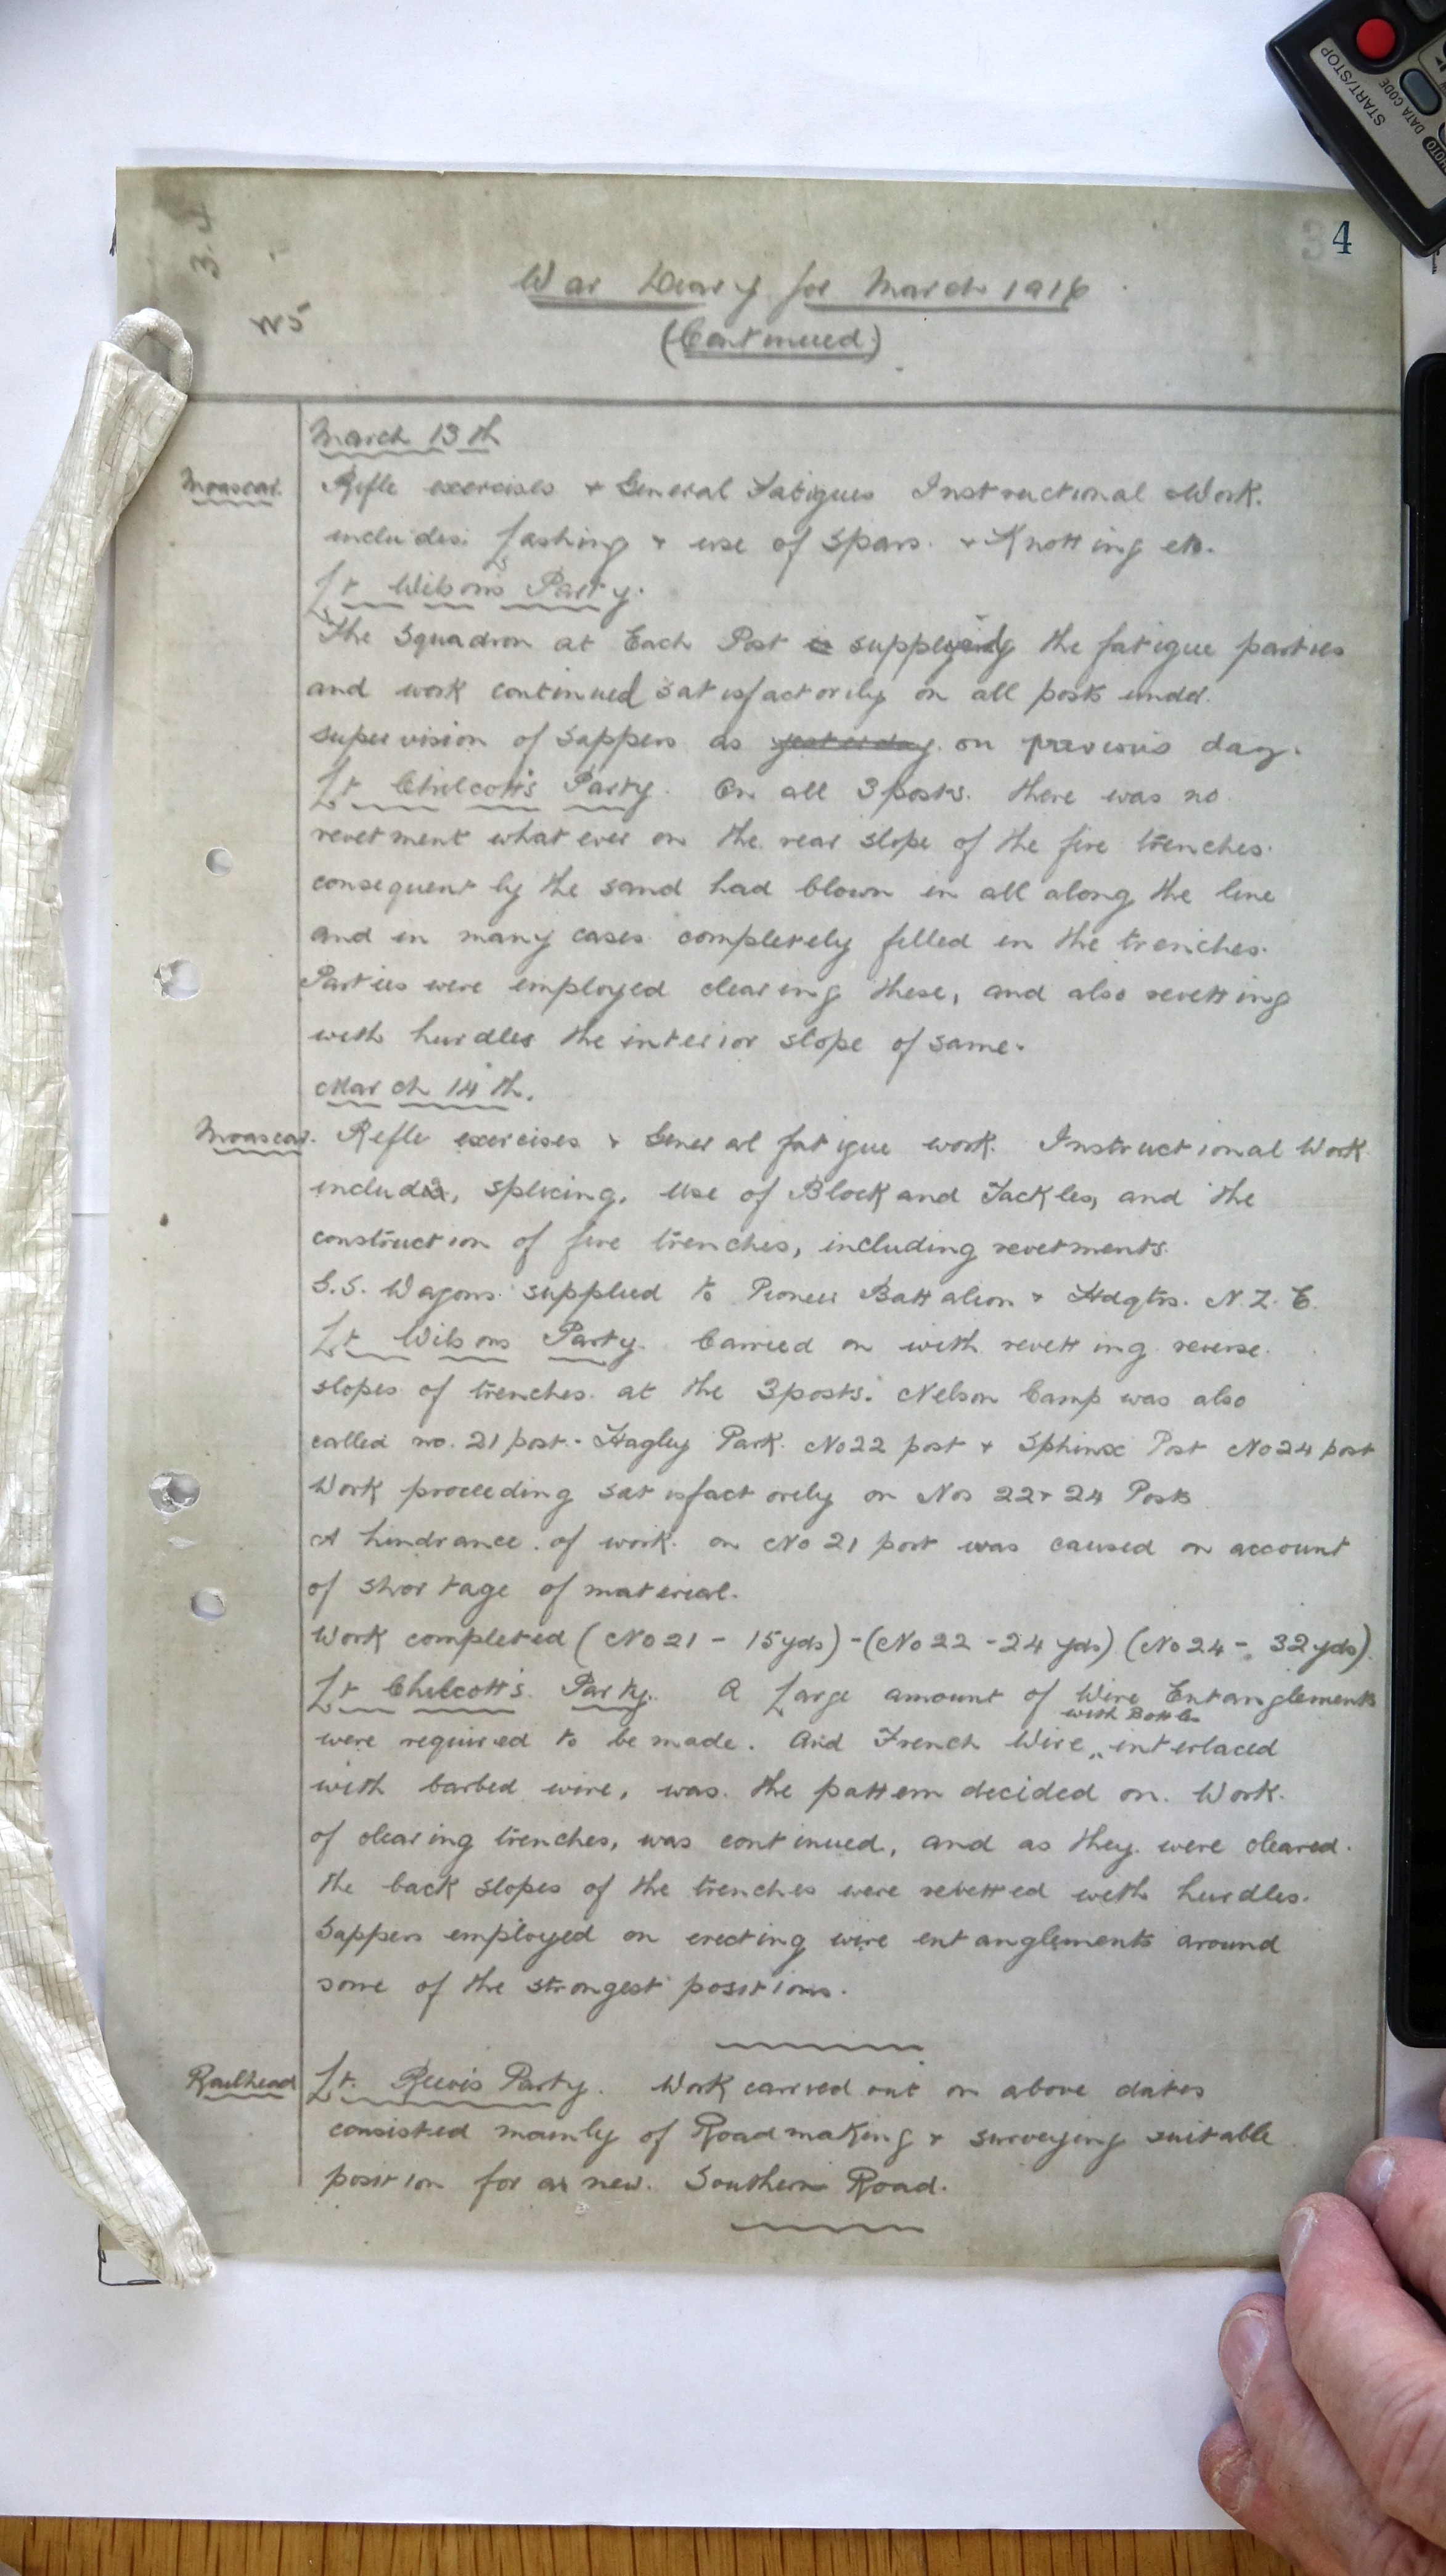 4
War Diary for March 1916
(Continued)
March 13th
Moascar. Rifle exercises + General Fatigues Instructional Work.
includes: Lashing + use of Spars. + Knotting etc.
Lt Wilson's Party.
The Squadron at Each Post supplying the fatigue parties
and work continued satisfactorily on all posts under
supervision of Sappers as yesterday on previous day.
Lt Chilcott's Party. On all 3 posts. there was no
revetment whatever on the rear slope of the fire trenches.
consequently the sand had blown in all along the line
and in many cases completely filled in the trenches.
Parties were employed clearing these, and also revetting
with hurdles the interior slope of same.
March 14th.
Moascar. Rifle exercises + General fatigue work. Instructional Work
includes, splicing, use of Block and Tackles, and the
construction of fire trenches, including revetments.
G.S. Wagons supplied to Pioneer Battalion + Hdqtrs. N.Z.E.
Lt Wilsons Party. Carried on with revetting reverse
slopes of trenches at the 3 posts. Nelson Camp was also
called no. 21 post - Hagley Park No 22 post + Sphinx Post No 24 post
Work proceeding satisfactorily on Nos 22 + 24 Posts
A hindrance of work on No 21 post was caused on account
of shortage of material.
Work completed (No 21 - 15 yds) - (No 22 - 24 yds) (No 24 - 32 yds).
Lt Chilcott's Party. A Large amount of Wire Entanglements
were required to be made. And French Wire, interlaced
with barbed wire, was the pattern decided on. Work.
of clearing trenches, was continued, and as they were cleared.
the back slopes of the trenches were revetted with hurdles.
Sappers employed on erecting wire entanglements around
some of the strongest positions.
Railhead Lt. Party. Work carried out on above dates
consisted mainly of Roadmaking + surveying suitable
position for a new Southern Road.
START/STOP
DATA CODE